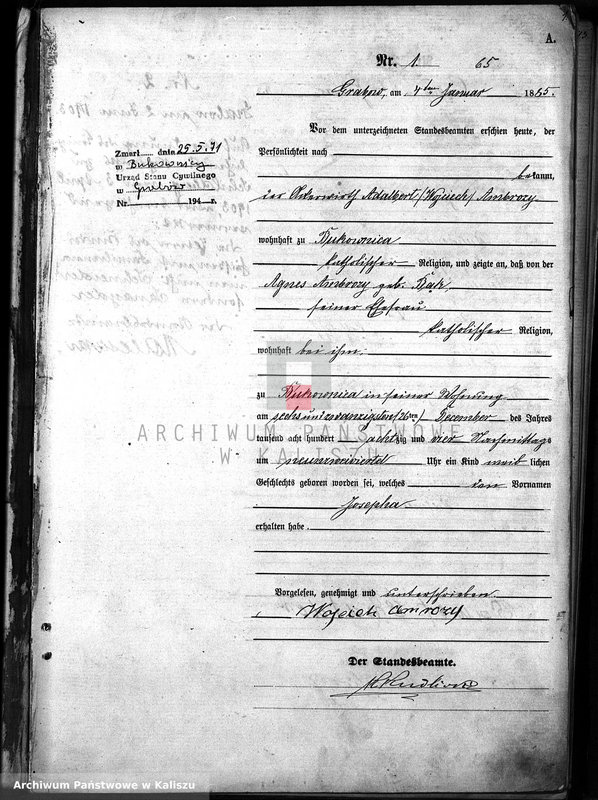 A.
Nr. 1 65
Grabow, am 4ten Januar 1885.
Vor dem unterzeichneten Standesbeamten erschien heute, der
Persönlichkeit nach
bekannt,
der Ackerwirth Adalbert /Wojciech/ Ambrozy
wohnhaft zu Bukownica
katholischer Religion, und zeigte an, daß von der
Agnes Ambrozy geb. Bąk
seiner Ehefrau
katholischer Religion,
wohnhaft bei ihm.
zu Bukownica in seiner Wohnung
am sechsundzwanzigsten /26ten/ December des Jahres
tausend acht hundert achtzig und vier Nachmittags
um Uhr ein Kind weiblichen
Geschlechts geboren worden sei, welches den Vornamen
Josepha
erhalten habe.
Vorgelesen, genehmigt und unterschrieben
Wojciech Ambrozy
Der Standesbeamte.
Zmarł dnia 25.5.71
w Bukownicy
Urząd Stanu Cywilnego
w Grabów
Nr. 194 r.
ARCHIWUM PAŃSTWOWE
W KALISZU
Archiwum Państwowe w Kaliszu